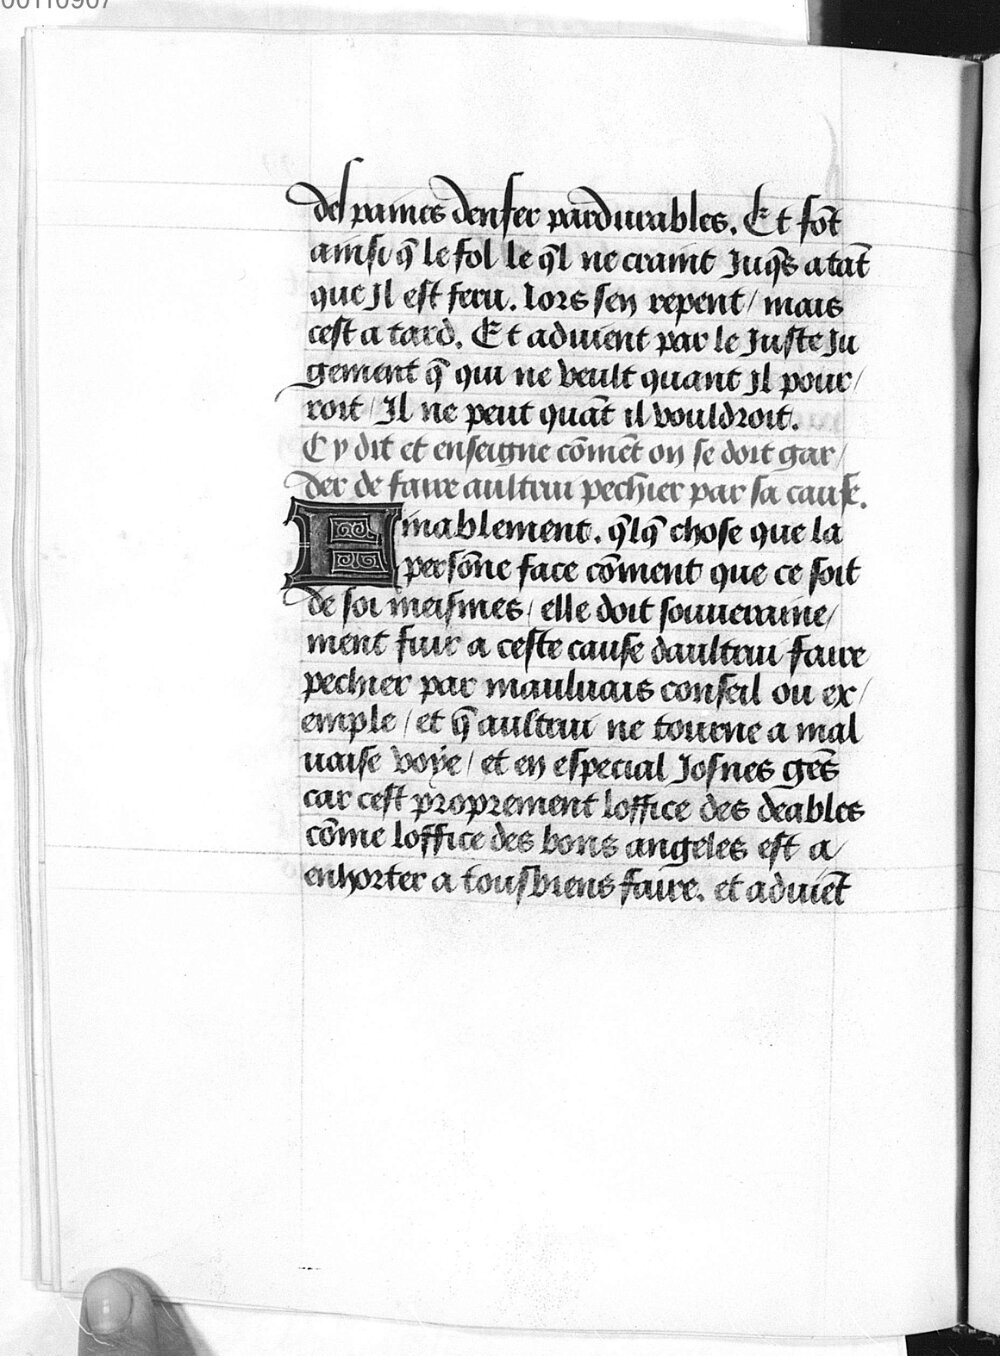 00110907
des paines denfer pardurables. Et fōt
ainsi q̄ le fol le q̄l ne craint Juq̄s a tāt
que Jl est feru. lors sen repent / mais
cest a tard. Et aduient par le Juste Ju
gement q̄ qui ne veult quant Jl pour/
roit / Jl ne peut quāt il vouldroit.
Cy dit et enseigne cōmēt on se doit gar/
der de faire aultrui pechier par sa cause.
Finablement. q̄lq̄ chose que la
persōne face cōment que ce soit
de soi meismes / elle doit souueraine/
ment fuir a ceste cause daultrui faire
pechier par mauluais conseil ou ex/
emple / et q̄ aultrui ne tourne a mal
uaise voye / et en especial Josnes gēs
car cest proprement loffice des deables
cōme loffice des bons angeles est a/
enhorter a tous biens faire. et aduiēt